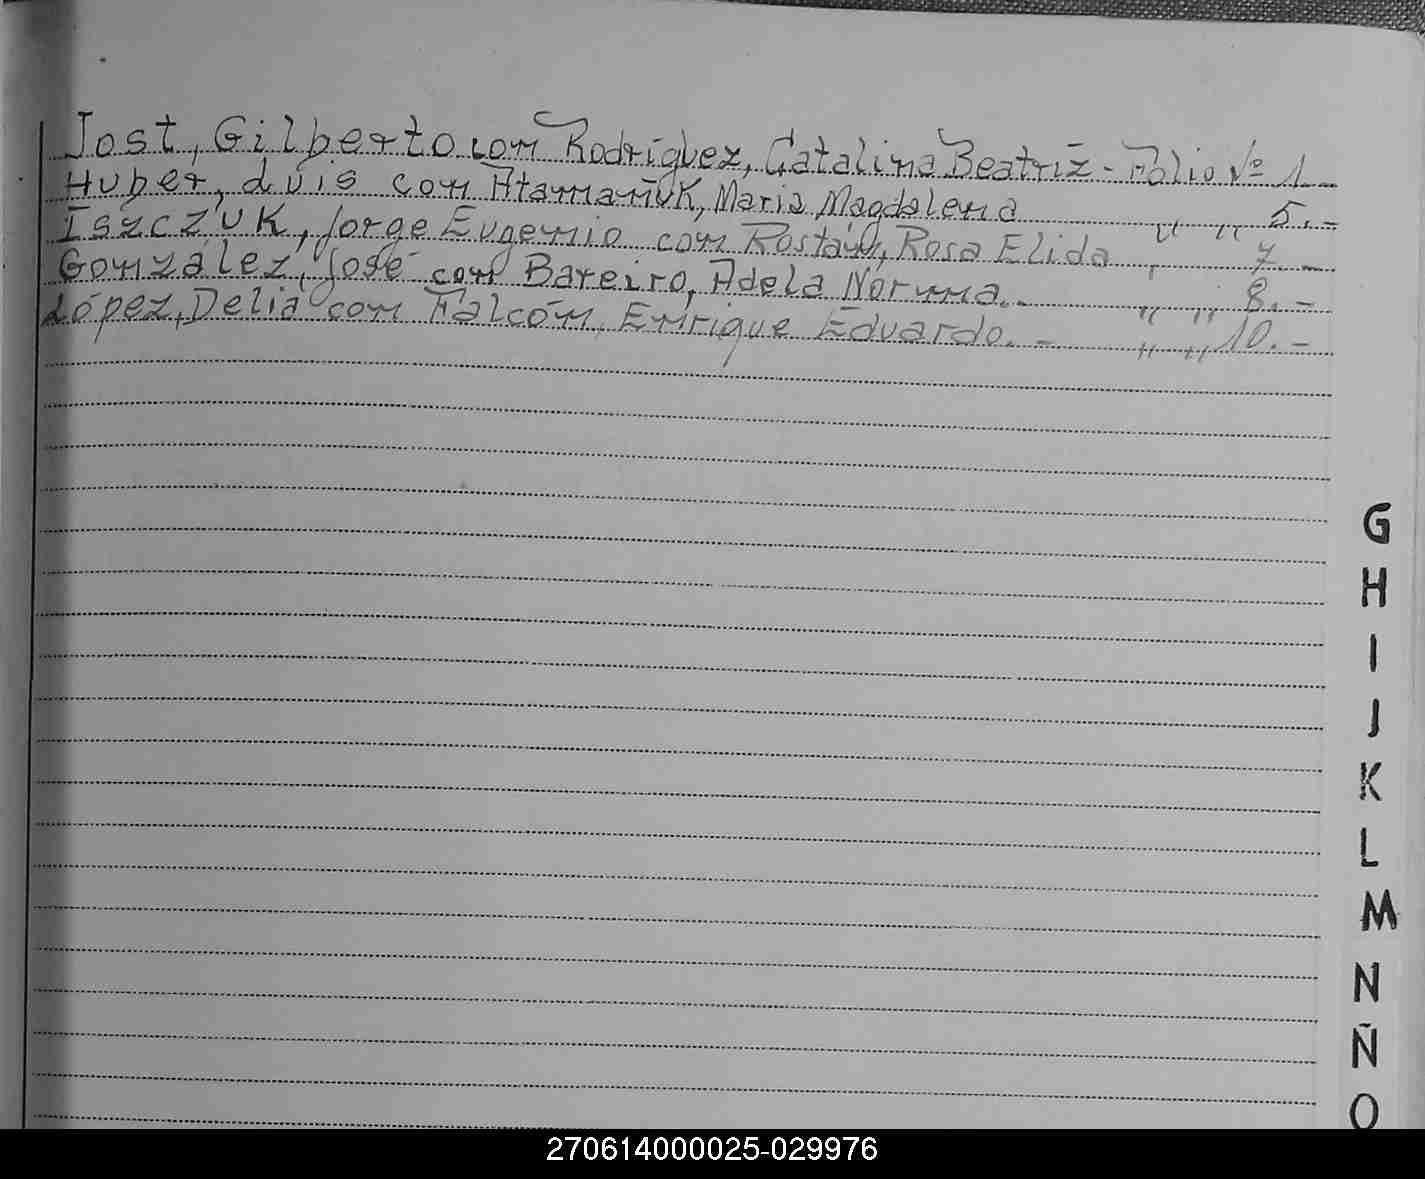 Jost, Gilberto con Rodríguez, Catalina Beatriz - Folio Nº 1 -
Huber, Luis con Atamañuk, Maria Magdalena " " 5. -
Iszczuk, Jorge Eugenio con Rosa Elida " 7 -
González, José con Bareiro, Adela Norma. - " " 8. -
López, Delia con Falcón, Enrique Eduardo. - " " 10. -
G
H
I
J
K
L
M
N
Ñ
O
270614000025-029976